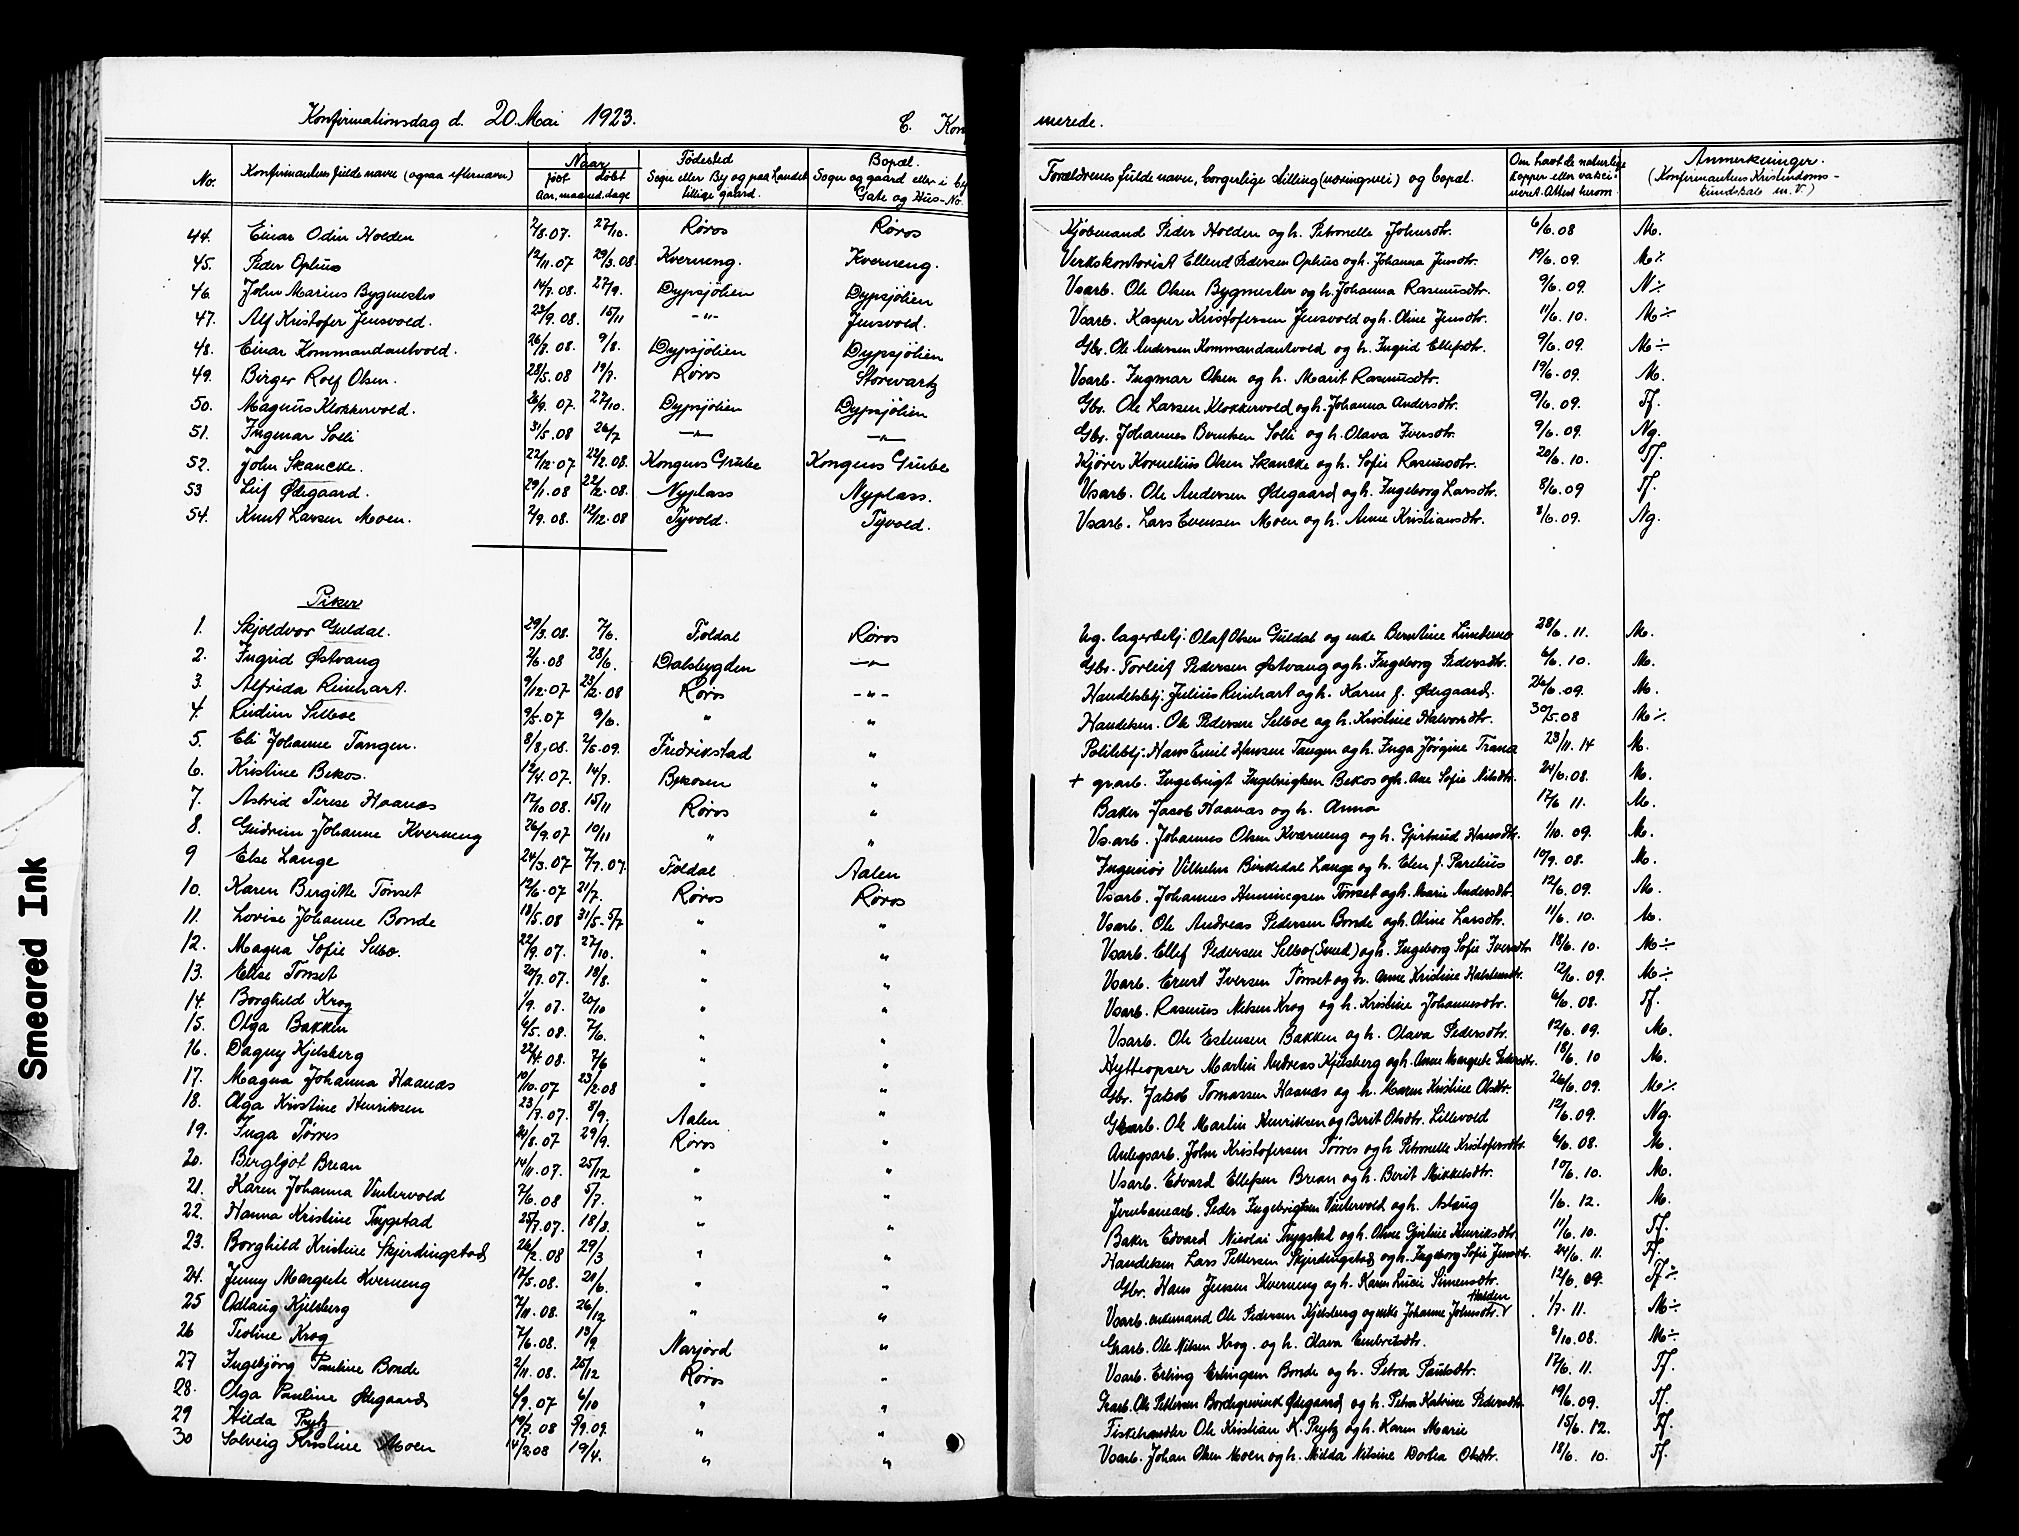 Konfirmationsdag d. 20. Mai 1923. C. Kon
merede.
No. Konfirmantens fulde navn (ogsaa efternavn) Naar født døbt Aar, maaned, dage Fødested Sogn eller By og paa Landet tillige gaard. Bopæl. Sogn og gaard eller i by Gate og Hus-No. Forældrenes fulde navn, borgerlige stilling (næringsvei) og bopæl. Om havt de naturlige kopper eller vakcineret. Attest herom Anmerkninger. (Konfirmantens Kristendomskundskab m.V.)
44. Einar Odin Holden 7/8.07. 27/10. Røros Røros Kjøbmand Peder Holden og h. Petronelle Johnsdtr. 6/6.08 M.
45. Peder Ophus 12/11.07 29/3.08. Kverneng. Kverneng. Verkskontorist Ellend Pedersen Ophus og h. Johanna Jensdtr. 19/6.09. M÷
46. John Marius Bygmester 14/7.08. 27/9. Dypsjölien Dypsjölien Vsarb. Ole Olsen Bygmester og h. Johanna Rasmusdtr. 9/6.09. N÷
47. Alf Kristofer Jensvold. 23/9.08. 15/11 -"- Jensvold. Vsarb. Kasper Kristofersen Jensvold og h. Oline Jensdtr. 11/6.10. M÷
48. Einar Kommandantvold. 26/7.08. 9/8. Dypsjölien Dypsjölien Gbr. Ole Andersen Kommandantvold og h. Ingrid Ellefsdtr. 9/6.09. M÷
49. Birger Rolf Olsen. 28/5.08 19/7. Røros Storvartz Vsarb. Ingmar Olsen og h. Marit Rasmusdtr. 19/6.09. M.
50. Magnus Klokkervold. 26/9.07. 27/10. Dypsjölien Dypsjölien Gbr. Ole Larsen Klokkervold og h. Johanna Andersdtr. 9/6.09. Tf.
51. Ingmar Solli 31/5.08 26/7 -"- -"- Gbr. Johannes Berntsen Solli og h. Olava Iversdtr. 9/6.09. Ng.
52. John Skancke. 22/12.07 22/2.08. Kongens Grube Kongens Grube Kjører Kornelius Olsen Skancke og h. Sofie Rasmusdtr. 20/6.10. Tf.
53 Leif Ødegaard. 29/1.08 22/2.08. Nyplass Nyplass. Vsarb. Ole Andersen Ødegaard og h. Ingeborg Larsdtr. 8/6.09 Tf.
54. Knut Larsen Moen. 2/9.08. 12/12.08 Tyvold. Tyvold. Vsarb. Lars Evensen Moen og h. Anne Kristiansdtr. 8/6.09. Ng.
Piker
1. Skjoldvor Guldal. 29/3.08. 7/6. Foldal Røros Ug. lagerbetj. Olaf Olsen Guldal og enke Berntine 28/6.11. M.
2. Ingrid Østvang 2/6.08 28/6. Dalsbygden -"- Gbr. Torleif Pedersen Østvang og h. Ingeborg Pedersdtr. 6/6.10. M.
3. Alfrida Reinhart. 9/12.07 23/2.08 Røros -"- Handelsbetj. Julius Reinhart og h. Karen f. Ødegaard. 26/6.09. M.
4. Lidin Selboe 9/5.07 9/6. " " Handelsm. Ole Pedersen Selboe og h. Kristine Halvorsdtr. 30/5.08 M÷
5. Eli Johanne Tangen. 8/8.08. 2/5.09. Fredrikstad " Politibtj. Hans Emil Hansen Tangen og h. Inga Jørgine Trana 23/11.14 M.
6. Kristine Bekos. 12/4.07. 14/7. Bekosen " + gr.arb. Ingebrigt Ingebrigtsen Bekos og h. Ane Sofie Nilsdtr. 24/6.08. M.
7. Astrid Terese Haanæs 12/10 08. 15/11 Røros " Baker Jacob Haanæs og h. Anna 17/6 11. M.
8. Gudrun Johanne Kverneng 26/9.07 10/11 " " Vs.arb. Johannes Olsen Kværneng og h. Gjertrud Hansdtr. 1/10.09. M.
9 Else Lange 24/3.07 7/7.07. Foldal Aalen Ingeniør Vilhelm Birkedal Lange og h. Elen f. Parelius 10/9.08. M.
10. Karen Bergitte Tønset 12/6.07 21/7. Røros Røros Vsarb. Johannes Henningsen Tønset og h. Marie Andersdtr. 12/6.09. M.
11. Lovise Johanne Bonde 18/5.08 31/5-5/7 " " Vsarb. Ole Andreas Pedersen Bonde og h. Oline Larsdtr. 11/6.10. M.
12. Magna Sofie Selbo. 22/9.07. 27/10. " " Vsarb. Ellef Pedersen Selbo (Smed) og h. Ingeborg Sofie Iversdtr 18/6.10. M÷
13. Elise Tønset 20/7.07. 18/8. " " Vsarb. Ernst Iversen Tønset og h. Anne Kristine Halstensdtr. 12/6.09. M÷
14. Borghild Krog 1/9.07. 20/10 " " Vsarb. Rasmus Nilsen Krog og h. Kristine Johannesdtr. 6/6.08. Tf.
15. Olga Bakken 6/5.08. 7/6. " " Vsarb. Ole Estensen Bakken og h. Olava Pedersdtr. 12/6.09. M.
16. Dagny Kjelsberg 22/4.08. 7/6 " " Hytteopser Martin Andreas Kjelsberg og h. Anne Margrete Pedersdtr. 18/6.10 M.
17. Magna Johanna Haanæs 10/10.07 23/2.08 " " Gbr. Jakob Tomassen Haanæs og h. Maren Kristine Olsdtr. 26/6.09. M÷
18. Olga Kristine Henriksen 23/7.07. 8/9. Aalen " Gbarb. Ole Martin Henriksen og Berit Olsdtr. Lillevold 12/6.09. Ng.
19. Inga Tørres 21/8.07 29/9. Røros " Anlegsarb. John Kristofersen Tørres og h. Petronelle Kristofersdtr. 6/6.08. M.
20. Bergljot Brean 14/11.07. 25/12 " " Vsarb. Edvard Ellefsen Brean og h. Berit Mikkelsdtr. 10/6.10. M.
21. Karen Johanna Vintervold 7/6.08 5/7. " " Jernbanearb. Peder Ingebrigtsen Vintervold og h. Aslaug 1/6.12. M.
22. Hanna Kristine Trygstad 25/7.07. 18/8. " " Baker Edvard Nicolai Trygstad og h. Oline Gjertine Henriksdtr. 11/6.10. Tf.
23. Borghild Kristine Skjerdingstad 26/2.08 29/3 " " Handelsm. Lars Pettersen Skjerdingstad og h. Ingeborg Sofie Jensdtr. 24/6.11. Tf.
24. Jenny Margrete Kverneng 17/5.08. 21/6. " " Gbr. Hans Jensen Kverneng og h. Karen Lucie Simensdtr. 12/6.09. Tf÷
25 Odlaug Kjelsberg 7/11.08. 26/12 " " Vsarb. enkemand Ole Pedersen Kjelsberg og enke Johanne Johnsdtr. Holden 1/7.11. M÷
26 Teoline Krog 7/6.08. 19/9 Narjord " Garb. Ole Nilsen Krog. og h. Olava Embretsdtr. 8/10.08. M÷
27 Ingebjörg Pauline Bonde 2/11.08. 25/12 Røros " Vsarb. Erling Erlingsen Bonde og h. Petra Paulsdtr. 17/6.11. Tf.
28. Olga Pauline Ødegaard 4/9.07 6/10 " " Garb. Ole Pettersen Bordegrevind Ødegaard og h. Petra Katrine Pedersdtr. 19/6.09. Tf.
29 Hilda Prytz 19/7.08 5/9.09. " " Fiskehandler Ole Kristian K. Prytz og h. Karen Marie 15/6.12. Tf.
30 Solveig Kristine Moen 14/2.08 19/4. " " Vsarb. Johan Olsen Moen og h. Milda Nilsine Dortea Olsdtr. 18/6.10. Tf.
Smeared Ink